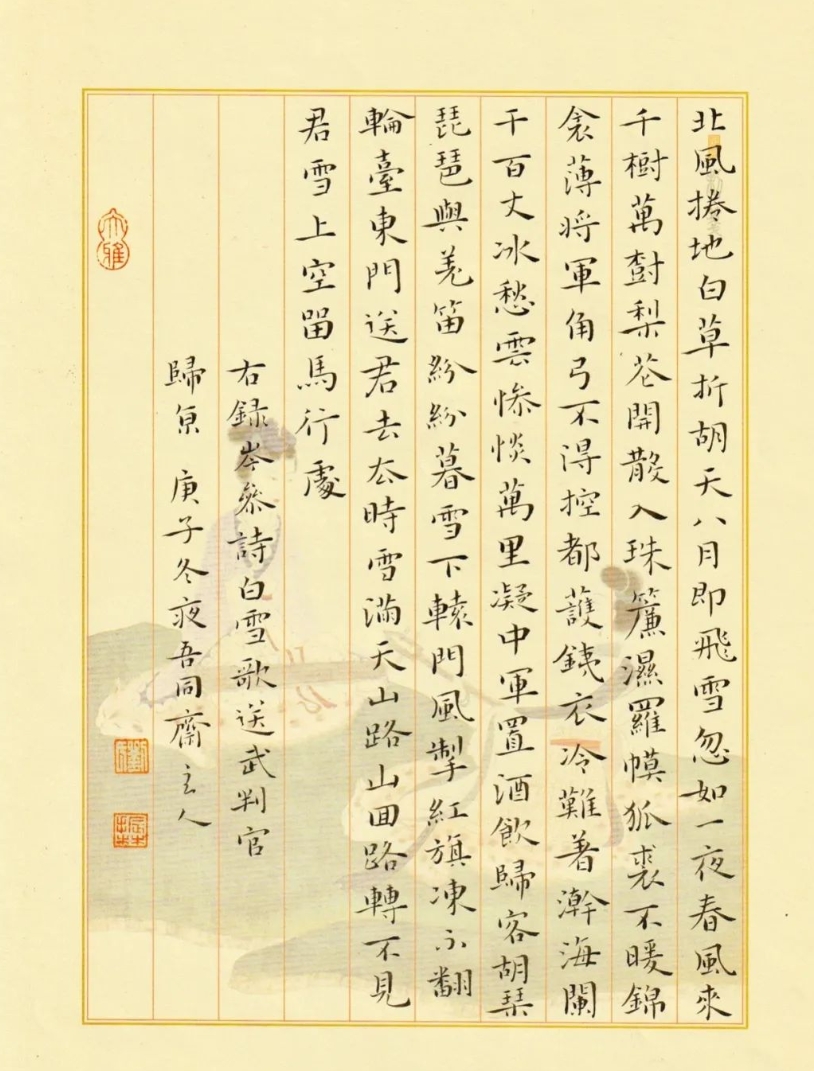 北風捲地白草折胡天八月即飛雪忽如一夜春風來
千樹萬樹梨花開散入珠簾濕羅幙狐裘不暖錦
衾薄將軍角弓不得控都護鐵衣冷難着瀚海闌
干百丈冰愁雲惨惔萬里凝中軍置酒飲歸客胡琴
琵琶與羌笛紛紛暮雪下轅門風掣紅旗凍不翻
輪臺東門送君去去時雪滿天山路山回路轉不見
君雪上空留馬行處
右録岑參詩白雪歌送武判官
歸京 庚子冬夜吾同齋主人
大雅